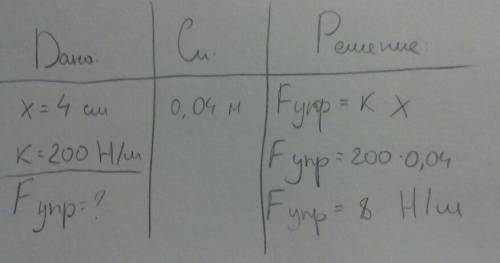 Дано: Си. Решение:
x = 4 см 0,04 м Fупр = K x
K = 200 Н/м Fупр = 200 · 0,04
Fупр = ? Fупр = 8 Н/м